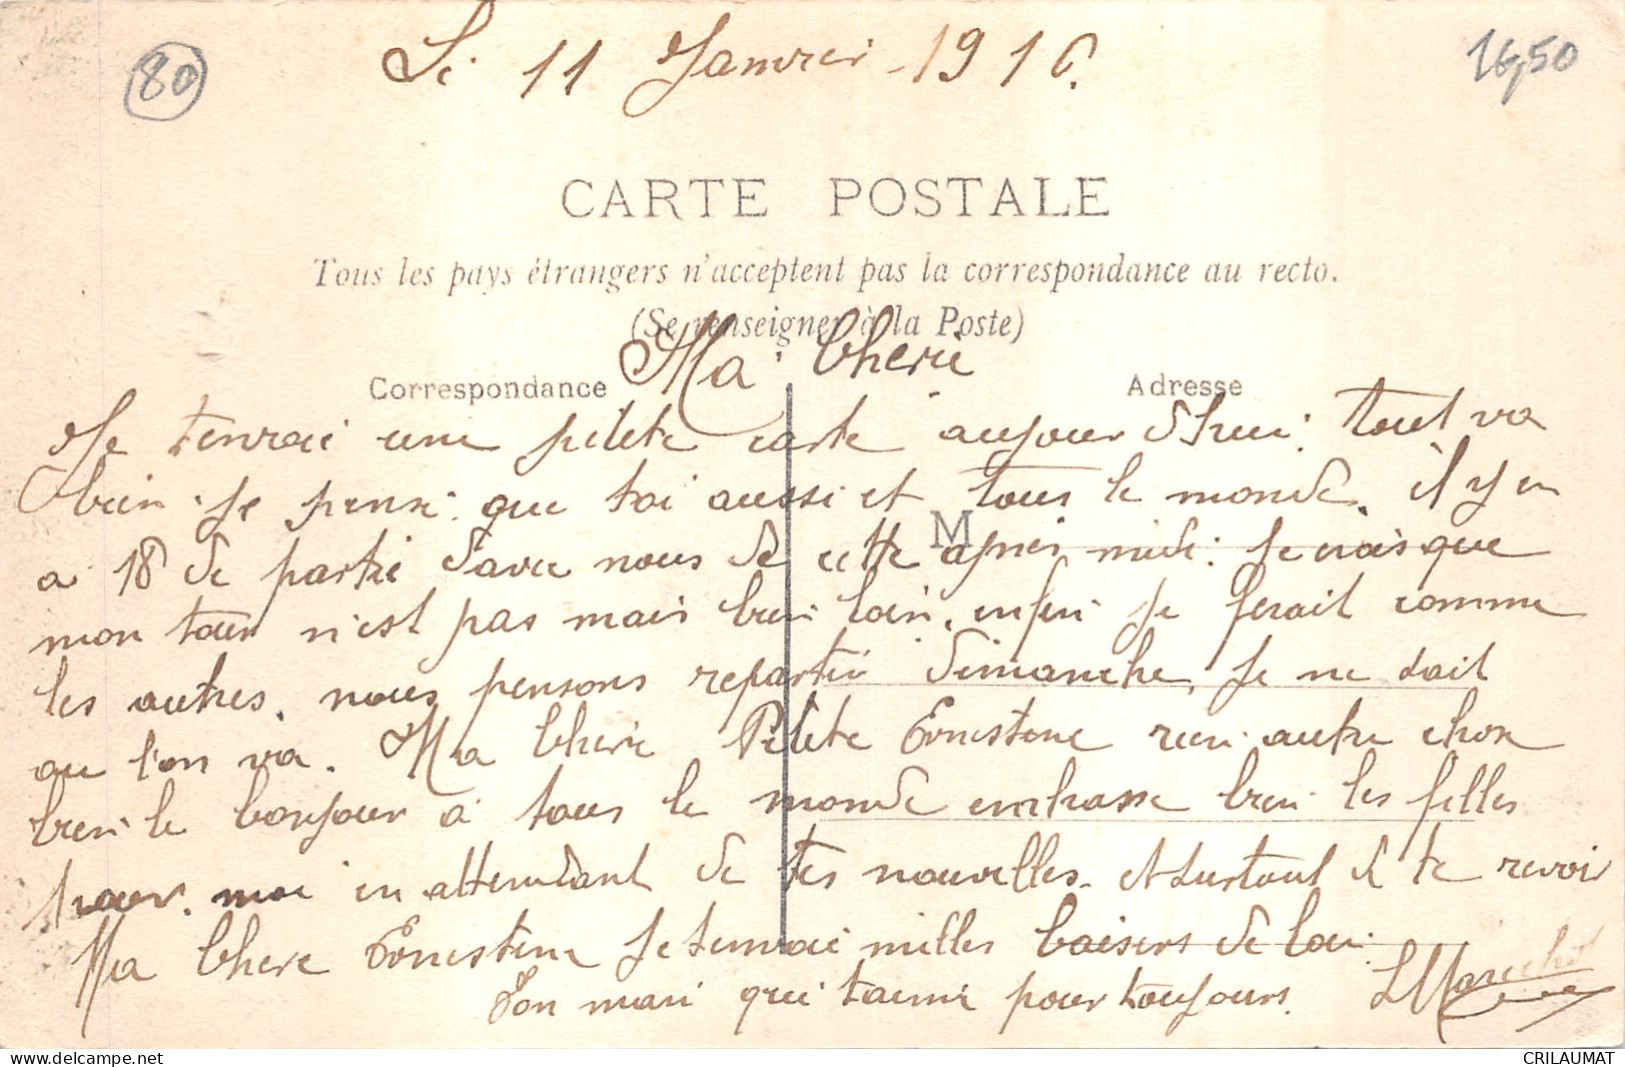 80
Le 11 Janvier 1916.
16,50
CARTE POSTALE
Tous les pays étrangers n'acceptent pas la correspondance au recto.
(Se renseigner à la Poste)
Ma Cherie
Correspondance
Adresse
Je tenvoie une petete carte aujour dhui. tout va
bien. je pense que toi aussi et tous le monde. il y en
M
a 18 de partie davec nous de cette apres midi. Je crois que
mon tour n'est pas mais bien loin. enfin je ferait comme
les autres. nous pensons repartir dimanche. Je ne sait
ou l'on va. Ma Cherie Petete Ernestine rien autre chose
bien le bonjour a tous le monde embrasse bien les filles
pour moi en attendant de tes nouvelles. et surtout de te revoir
Ma Chere Ernestine je tenvoie milles baisers de loin.
Ton mari qui taime pour toujours.